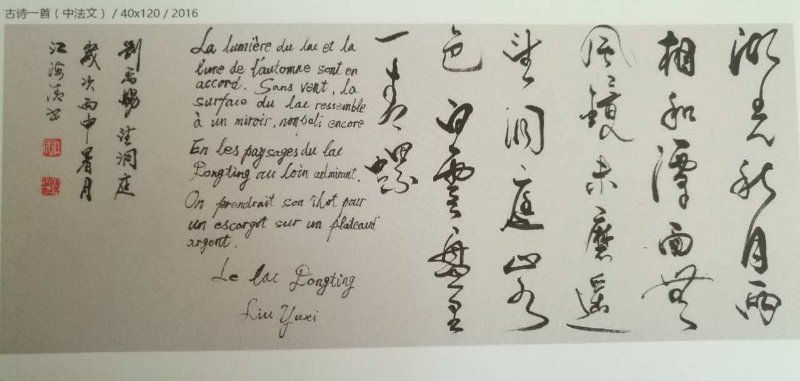 古诗一首（中法文） / 40x120 / 2016
湖光秋月兩
相和潭面無
風鏡未磨遥
望洞庭山水
色白雲盤里
一青螺
La lumière du lac et la
lune de l'automne sont en
accord. Sans vent, la
surface du lac ressemble
à un miroir, non poli encore
En les paysages du lac
Dongting au loin admirant.
On prendrait son îlot pour
un escargot sur un plateau d'
argent.
Le lac Dongting
Liu Yuxi
劉禹錫望洞庭
歲次丙申暑月
江海书